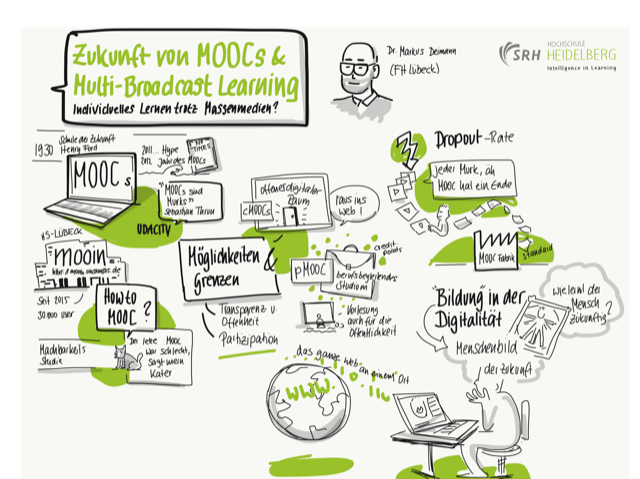 Zukunft von MOOCs &
Multi-Broadcast Learning
Individuelles Lernen trotz Massenmedien?
Dr. Markus Deimann
(FH Lübeck)
SRH HOCHSCHULE
HEIDELBERG
Intelligence in Learning
1930
Schule der Zukunft
Henry Ford
MOOCs
2011... Hype
2012 Jahr des MOOCs
NY TIMES
"MOOCs sind
Murks"
Sebastian Thrun
UDACITY
offener digitaler
Raum
cMOOCs
raus ins
Web!
Dropout-Rate
jeder Murk, äh
MOOC hat ein Ende
MOOC Fabrik
Standard
mooin
Seit 2015
30.000 User
How to
MOOC?
Machbarkeits
Studie
Der letzte MOOC
war schlecht,
sagt mein
Kater
Möglichkeiten
& Grenzen
Transparenz u.
Offenheit
Partizipation
pMOOC
credit
points
berufsbegleitendes
Studium
Vorlesung
auch für die
Öffentlichkeit
"Bildung" in der
Digitalität
Menschenbild
der Zukunft
wie lernt der
Mensch
zukünftig?
das ganze Web an einem Ort
WWW.